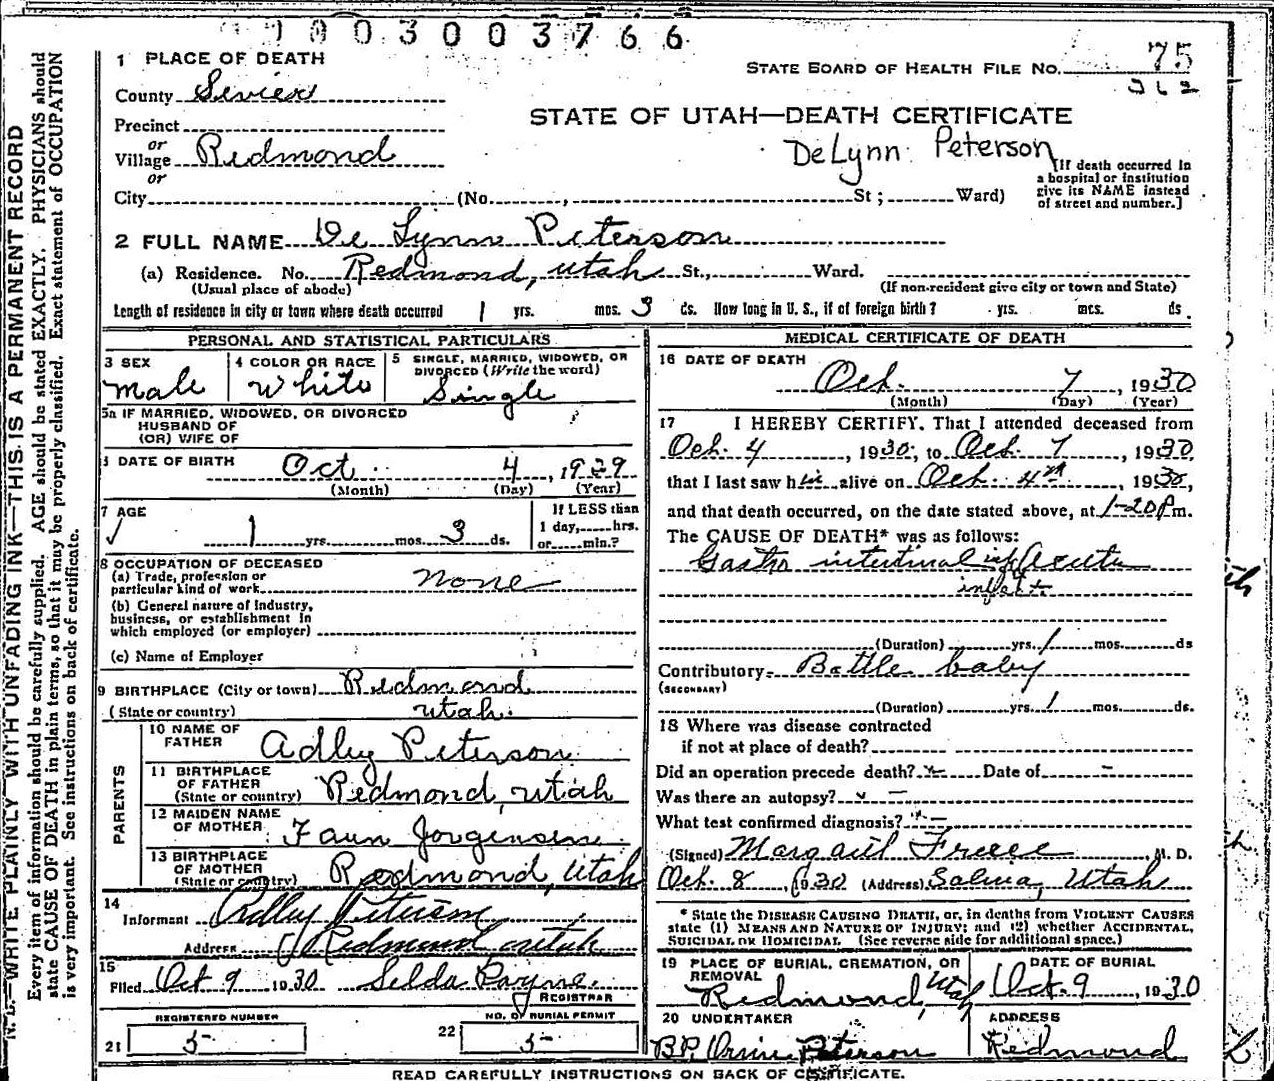 3003766
1 PLACE OF DEATH
STATE BOARD OF HEALTH FILE NO. 75
362
County Sevier
STATE OF UTAH—DEATH CERTIFICATE
Precinct
or
Village Redmond
or
DeLynn Peterson
[If death occurred in
a hospital or institution
give its NAME instead
of street and number.]
City (No. , St ; Ward)
2 FULL NAME De Lynn Peterson
(a) Residence. No. Redmond, Utah St., Ward.
(Usual place of abode) (If non-resident give city or town and State)
Length of residence in city or town where death occurred 1 yrs. mos. 3 ds. How long in U. S., if of foreign birth? yrs. mos. ds.
PERSONAL AND STATISTICAL PARTICULARS
3 SEX
Male
4 COLOR OR RACE
White
5 SINGLE, MARRIED, WIDOWED, OR
DIVORCED (Write the word)
Single
5a IF MARRIED, WIDOWED, OR DIVORCED
HUSBAND OF
(OR) WIFE OF
DATE OF BIRTH Oct 4, 1929
(Month) (Day) (Year)
7 AGE
1 yrs. mos. 3 ds.
If LESS than
1 day, hrs.
or min.?
8 OCCUPATION OF DECEASED
(a) Trade, profession or
particular kind of work none
(b) General nature of Industry,
business, or establishment in
which employed (or employer)
(c) Name of Employer
9 BIRTHPLACE (City or town) Redmond
(State or country) Utah.
PARENTS
10 NAME OF
FATHER Adley Peterson
11 BIRTHPLACE
OF FATHER
(State or country) Redmond, Utah
12 MAIDEN NAME
OF MOTHER Faun Jorgensen
13 BIRTHPLACE
OF MOTHER
(State or country) Redmond, Utah
14
Informant Adley Peterson
Address Redmond Utah
15
Filed Oct 9 1930 Selda Payne
REGISTRAR
REGISTERED NUMBER
21 5
NO. OF BURIAL PERMIT
22 5
MEDICAL CERTIFICATE OF DEATH
16 DATE OF DEATH
Oct. 7, 1930
(Month) (Day) (Year)
17 I HEREBY CERTIFY, That I attended deceased from
Oct. 4, 1930, to Oct. 7, 1930
that I last saw him alive on Oct. 4th, 1930,
and that death occurred, on the date stated above, at 1-20 P m.
The CAUSE OF DEATH* was as follows:
Gastro intestinal Acute
(Duration) yrs. 1 mos. ds
Contributory Bottle baby
(SECONDARY)
(Duration) yrs. 1 mos. ds.
18 Where was disease contracted
if not at place of death?
Did an operation precede death? Date of –
Was there an autopsy? –
What test confirmed diagnosis? –
(Signed) Margaret Freece, M. D.
Oct. 8, 1930 (Address) Salina, Utah
* State the DISEASE CAUSING DEATH, or, in deaths from VIOLENT CAUSES
state (1) MEANS AND NATURE OF INJURY; and (2) whether ACCIDENTAL,
SUICIDAL OR HOMICIDAL. (See reverse side for additional space.)
19 PLACE OF BURIAL, CREMATION, OR
REMOVAL
Redmond, Utah
DATE OF BURIAL
Oct. 9, 1930
20 UNDERTAKER
Peterson
ADDRESS
Redmond
READ CAREFULLY INSTRUCTIONS ON BACK OF CERTIFICATE.
N. B.—WRITE PLAINLY WITH UNFADING INK—THIS IS A PERMANENT RECORD
Every item of information should be carefully supplied. AGE should be stated EXACTLY. PHYSICIANS should
state CAUSE OF DEATH in plain terms, so that it may be properly classified. Exact statement of OCCUPATION
is very important. See instructions on back of certificate.